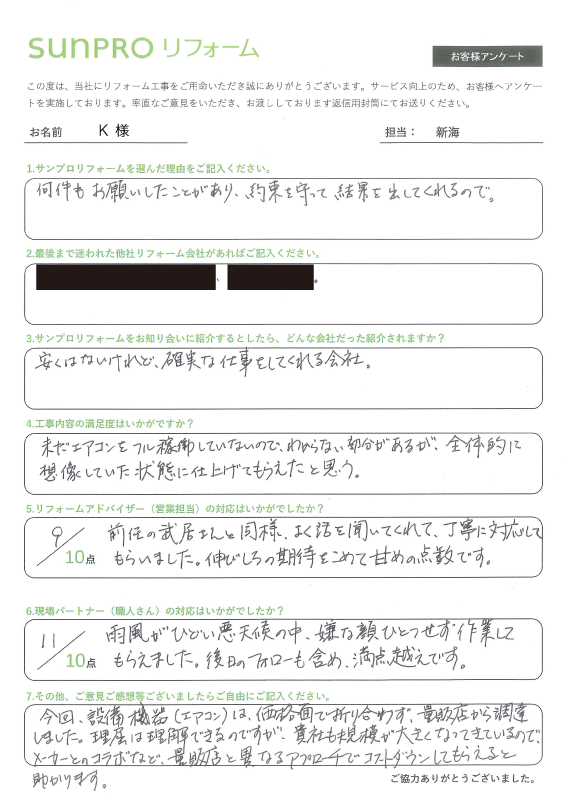 sunPRO リフォーム
お客様アンケート
この度は、当社にリフォーム工事をご用命いただき誠にありがとうございます。サービス向上のため、お客様へアンケー
トを実施しております。率直なご意見をいただき、お渡ししております返信用封筒にてお送りください。
お名前 K 様 担当： 新海
1.サンプロリフォームを選んだ理由をご記入ください。
何件もお願いしたことがあり、約束を守って結果を出してくれるので。
2.最後まで迷われた他社リフォーム会社があればご記入ください。
、 。
3.サンプロリフォームをお知り合いに紹介するとしたら、どんな会社だった紹介されますか？
安くはないけれど、確実な仕事をしてくれる会社。
4.工事内容の満足度はいかがですか？
未だエアコンをフル稼働していないので、わからない部分があるが、全体的に
想像していた状態に仕上げてもらえたと思う。
5.リフォームアドバイザー（営業担当）の対応はいかがでしたか？
9／10点
前任の武居さんと同様、よく話を聞いてくれて、丁寧に対応して
もらいました。伸びしろの期待をこめて甘めの点数です。
6.現場パートナー（職人さん）の対応はいかがでしたか？
11／10点
雨風がひどい悪天候の中、嫌な顔ひとつせず作業して
もらえました。後日のフォローも含め、満点越えです。
7.その他、ご意見ご感想等ございましたらご自由にご記入ください。
今回、設備機器（エアコン）は、価格面で折り合わず、量販店から調達
しました。理屈は理解できるのですが、貴社も規模が大きくなってきているので、
メーカーとのコラボなど、量販店と異なるアプローチでコストダウンしてもらえると
助かります。
ご協力ありがとうございました。